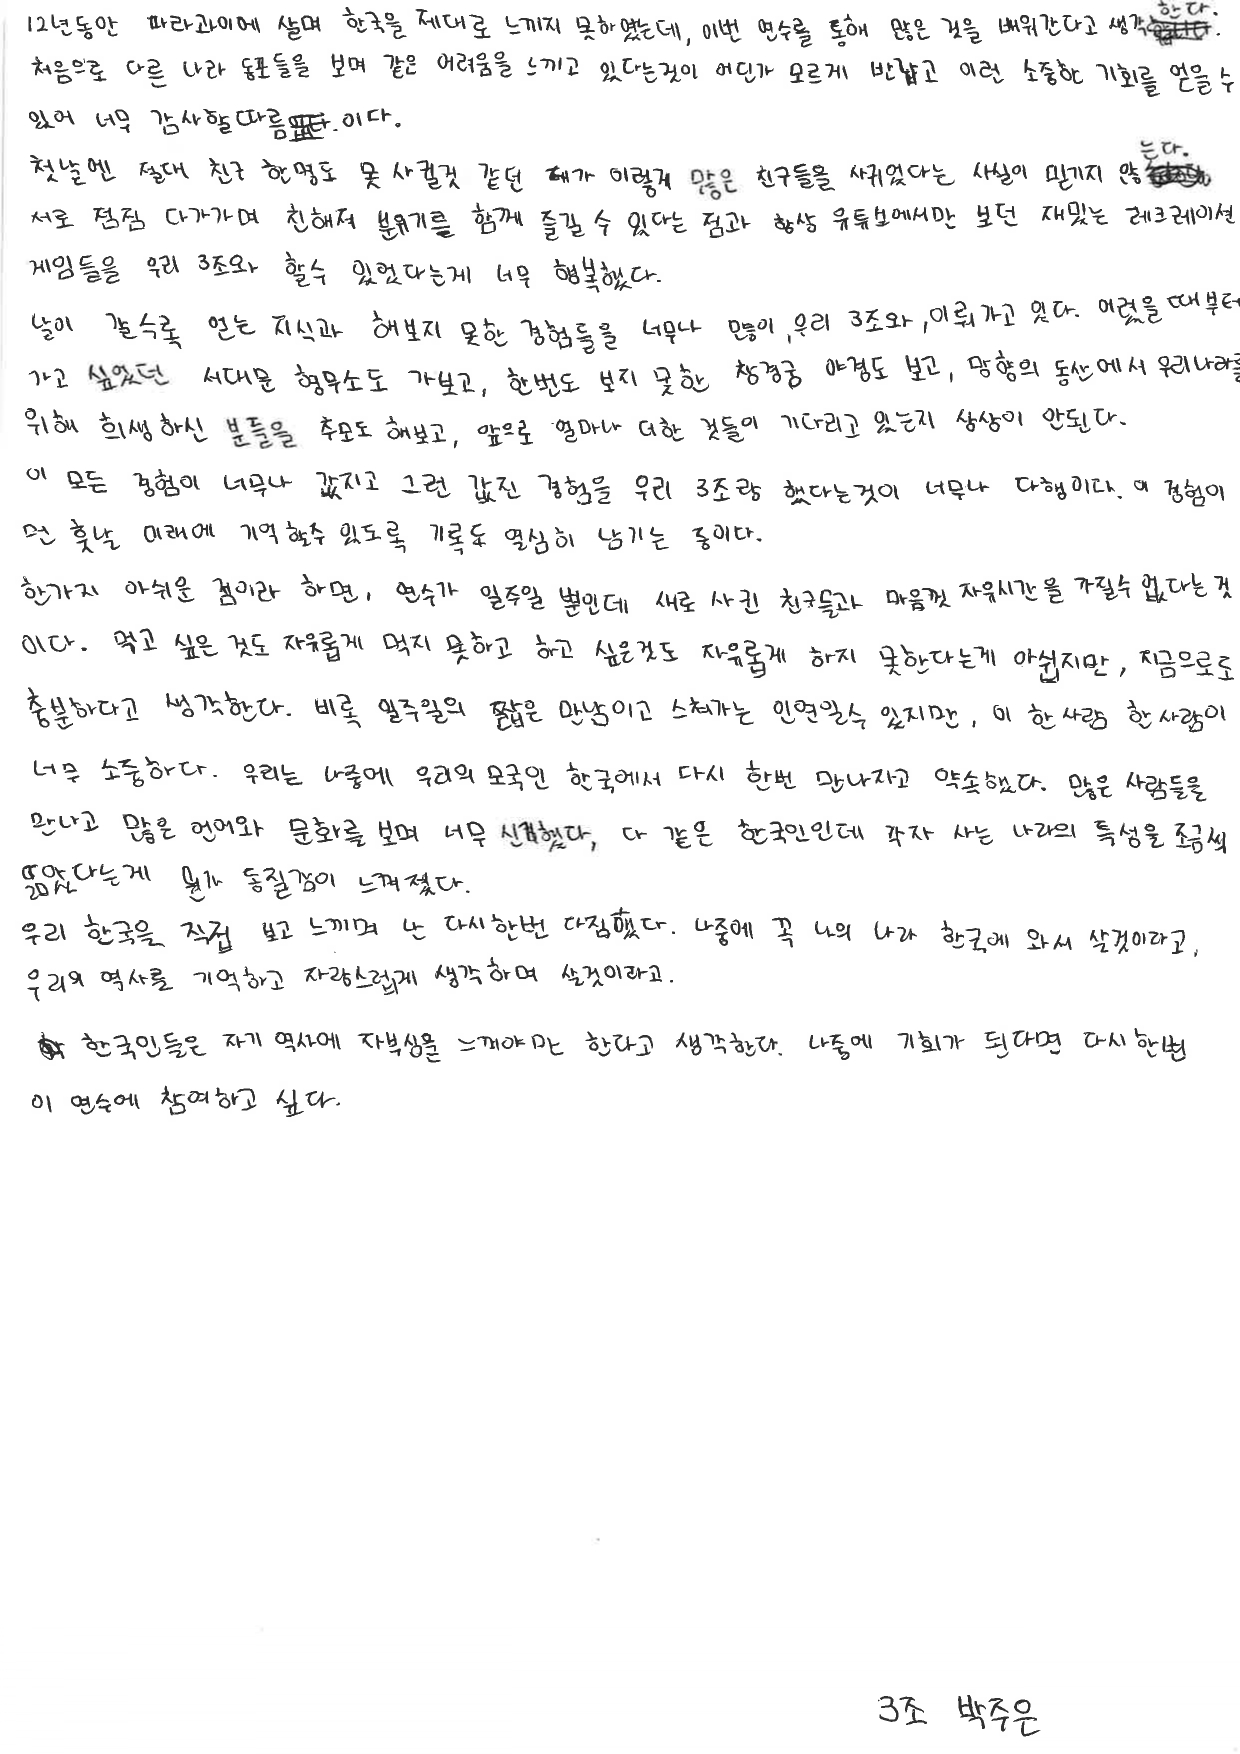 12년동안 파라과이에 살며 한국을 제대로 느끼지 못하였는데, 이번 연수를 통해 많은 것을 배워간다고 생각한다.
처음으로 다른 나라 동포들을 보며 같은 어려움을 느끼고 있다는것이 어딘가 모르게 반갑고 이런 소중한 기회를 얻을 수
있어 너무 감사할따름이다.
첫날엔 절대 친구 한명도 못 사귈것 같던 내가 이렇게 많은 친구들을 사귀었다는 사실이 믿기지 않는다.
서로 점점 다가가며 친해져 분위기를 함께 즐길 수 있다는 점과 항상 유튜브에서만 보던 재밌는 레크레이션
게임들을 우리 3조와 할수 있었다는게 너무 행복했다.
날이 갈수록 얻는 지식과 해보지 못한 경험들을 너무나 많이, 우리 3조와, 이뤄가고 있다. 어렸을 때부터
가고 싶었던 서대문 형무소도 가보고, 한번도 보지 못한 창경궁 야경도 보고, 망향의 동산에서 우리나라를
위해 희생하신 분들을 추모도 해보고, 앞으로 얼마나 더한 것들이 기다리고 있는지 상상이 안된다.
이 모든 경험이 너무나 값지고 그런 값진 경험을 우리 3조랑 했다는것이 너무나 다행이다. 이 경험이
먼 훗날 미래에 기억할수 있도록 기록도 열심히 남기는 중이다.
한가지 아쉬운 점이라 하면, 연수가 일주일 뿐인데 새로 사귄 친구들과 마음껏 자유시간을 가질수 없다는 것
이다. 먹고 싶은 것도 자유롭게 먹지 못하고 하고 싶은것도 자유롭게 하지 못한다는게 아쉽지만, 지금으로도
충분하다고 생각한다. 비록 일주일의 짧은 만남이고 스쳐가는 인연일수 있지만, 이 한사람 한사람이
너무 소중하다. 우리는 나중에 우리의 모국인 한국에서 다시 한번 만나자고 약속했다. 많은 사람들을
만나고 많은 언어와 문화를 보며 너무 신기했다, 다 같은 한국인인데 각자 사는 나라의 특성을 조금씩
닮았다는게 뭔가 동질감이 느껴졌다.
우리 한국을 직접 보고 느끼며 난 다시한번 다짐했다. 나중에 꼭 나의 나라 한국에 와서 살것이라고,
우리의 역사를 기억하고 자랑스럽게 생각하며 살것이라고.
한국인들은 자기 역사에 자부심을 느껴야만 한다고 생각한다. 나중에 기회가 된다면 다시한번
이 연수에 참여하고 싶다.
3조 박주은